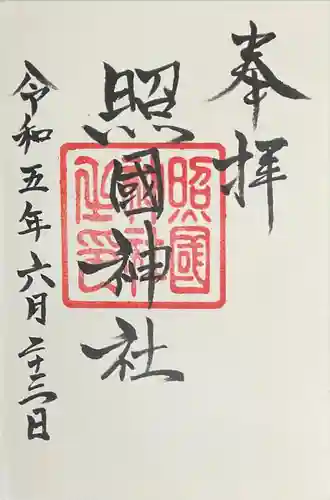 奉拝
照國神社
照國神社之印
令和五年六月二十三日